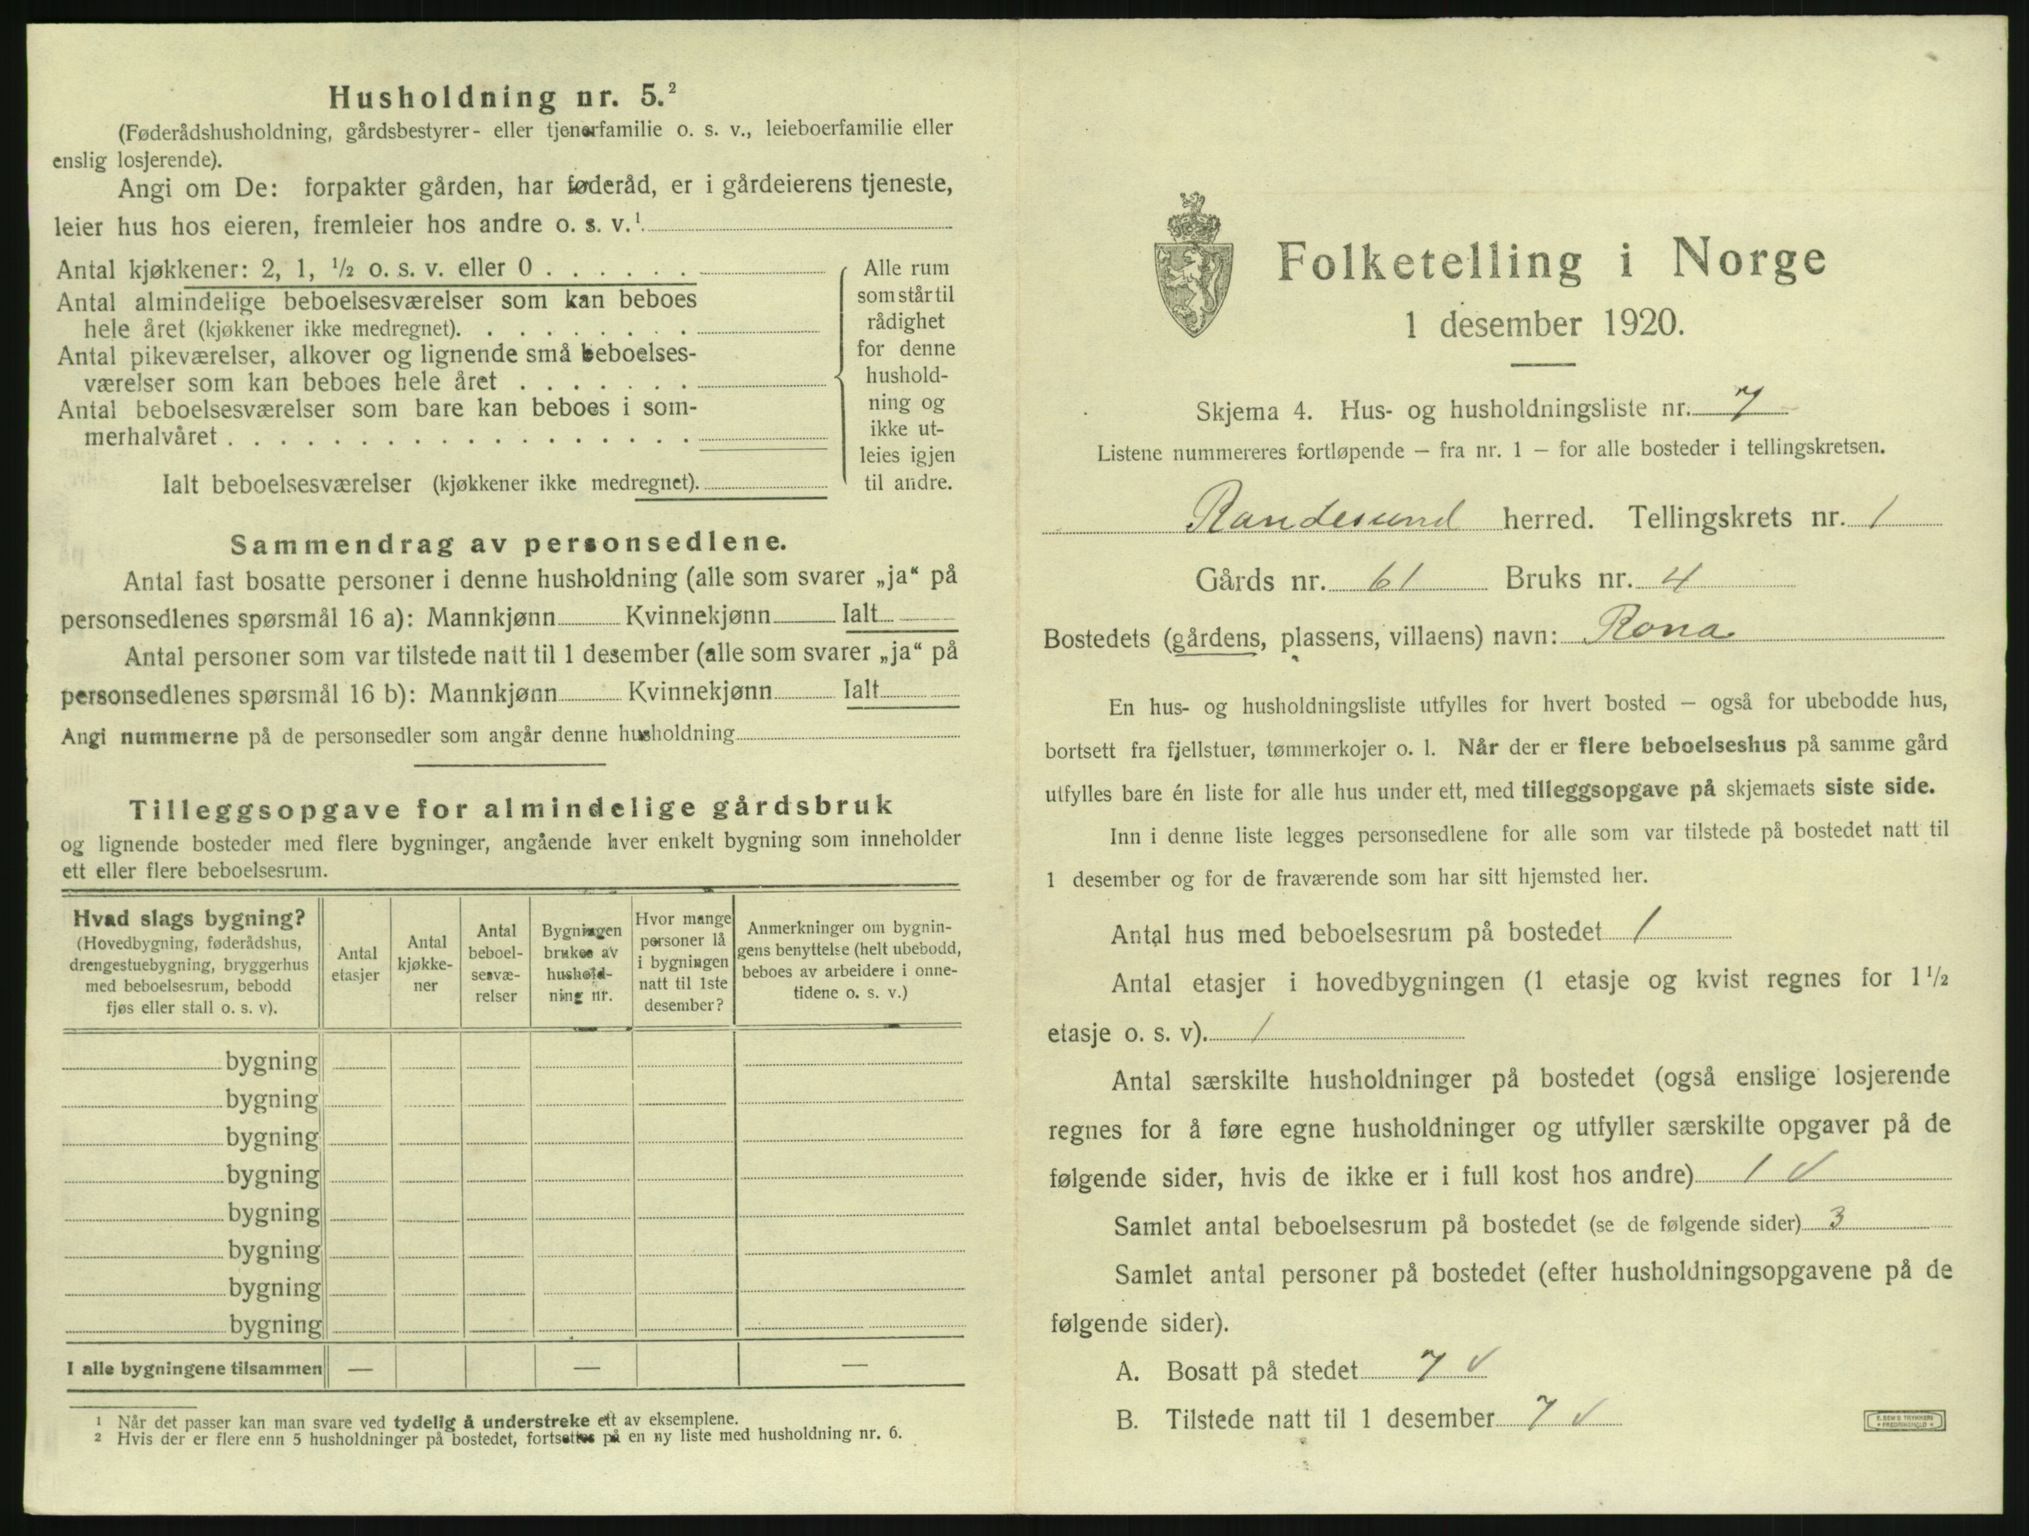 Husholdning nr. 5.²
(Føderådshusholdning, gårdsbestyrer- eller tjenerfamilie o. s. v., leieboerfamilie eller
enslig losjerende).
Angi om De: forpakter gården, har føderåd, er i gårdeierens tjeneste,
leier hus hos eieren, fremleier hos andre o. s. v.¹
Antal kjøkkener: 2, 1, ½ o. s. v. eller 0 . . . . . .
Antal almindelige beboelsesværelser som kan beboes
hele året (kjøkkener ikke medregnet). . . . . . . . .
Antal pikeværelser, alkover og lignende små beboelses-
værelser som kan beboes hele året . . . . . . .
Antal beboelsesværelser som bare kan beboes i som-
merhalvåret . . . . . . . . . . . . . . . . . .
Ialt beboelsesværelser (kjøkkener ikke medregnet).
Alle rum
som står til
rådighet
for denne
hushold-
ning og
ikke ut-
leies igjen
til andre.
Sammendrag av personsedlene.
Antal fast bosatte personer i denne husholdning (alle som svarer „ja“ på
personsedlenes spørsmål 16 a): Mannkjønn Kvinnekjønn Ialt
Antal personer som var tilstede natt til 1 desember (alle som svarer „ja“ på
personsedlenes spørsmål 16 b): Mannkjønn Kvinnekjønn Ialt
Angi nummerne på de personsedler som angår denne husholdning
Tilleggsopgave for almindelige gårdsbruk
og lignende bosteder med flere bygninger, angående hver enkelt bygning som inneholder
ett eller flere beboelsesrum.
Hvad slags bygning?
(Hovedbygning, føderådshus,
drengestuebygning, bryggerhus
med beboelsesrum, bebodd
fjøs eller stall o. s. v).
Antal
etasjer
Antal
kjøkke-
ner
Antal
beboel-
sesvæ-
relser
Bygningen
brukes av
hushold-
ning nr.
Hvor mange
personer lå
i bygningen
natt til 1ste
desember?
Anmerkninger om bygnin-
gens benyttelse (helt ubebodd,
beboes av arbeidere i onne-
tidene o. s. v.)
bygning
bygning
bygning
bygning
bygning
bygning
bygning
bygning
I alle bygningene tilsammen — — —
¹ Når det passer kan man svare ved tydelig å understreke ett av eksemplene.
² Hvis der er flere enn 5 husholdninger på bostedet, fortsettes på en ny liste med husholdning nr. 6.
Folketelling i Norge
1 desember 1920.
Skjema 4. Hus- og husholdningsliste nr. 7
Listene nummereres fortløpende – fra nr. 1 – for alle bosteder i tellingskretsen.
Randesund herred. Tellingskrets nr. 1
Gårds nr. 61 Bruks nr. 4
Bostedets (gårdens, plassens, villaens) navn: Rona
En hus- og husholdningsliste utfylles for hvert bosted – også for ubebodde hus,
bortsett fra fjellstuer, tømmerkojer o. l. Når der er flere beboelseshus på samme gård
utfylles bare én liste for alle hus under ett, med tilleggsopgave på skjemaets siste side.
Inn i denne liste legges personsedlene for alle som var tilstede på bostedet natt til
1 desember og for de fraværende som har sitt hjemsted her.
Antal hus med beboelsesrum på bostedet 1
Antal etasjer i hovedbygningen (1 etasje og kvist regnes for 1½
etasje o. s. v). 1
Antal særskilte husholdninger på bostedet (også enslige losjerende
regnes for å føre egne husholdninger og utfyller særskilte opgaver på de
følgende sider, hvis de ikke er i full kost hos andre) 1 √
Samlet antal beboelsesrum på bostedet (se de følgende sider) 3
Samlet antal personer på bostedet (efter husholdningsopgavene på de
følgende sider).
A. Bosatt på stedet 7 √
B. Tilstede natt til 1 desember 7 √